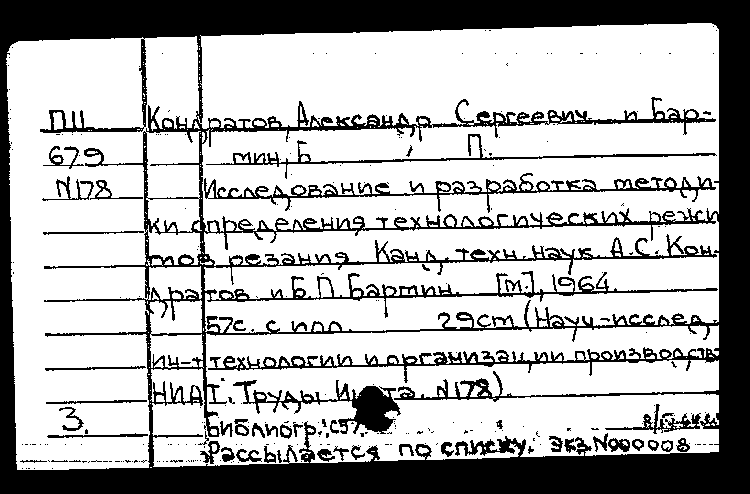 П11 Кондратов, Александр Сергеевич и Бар-
679 мин, Б П.
N178 Исследование и разработка методи-
ки определения технологических режи
мов резания. Канд. техн. наук А.С. Кон-
дратов и Б.П. Бармин. [м.], 1964.
57с. с илл. 29см (Науч-исслед.
ин-т технологии и организации производства
НИАТ. Труды Ин-та. N178).
3. Библиогр.: с57.
Рассылается по списку. экз. N000008